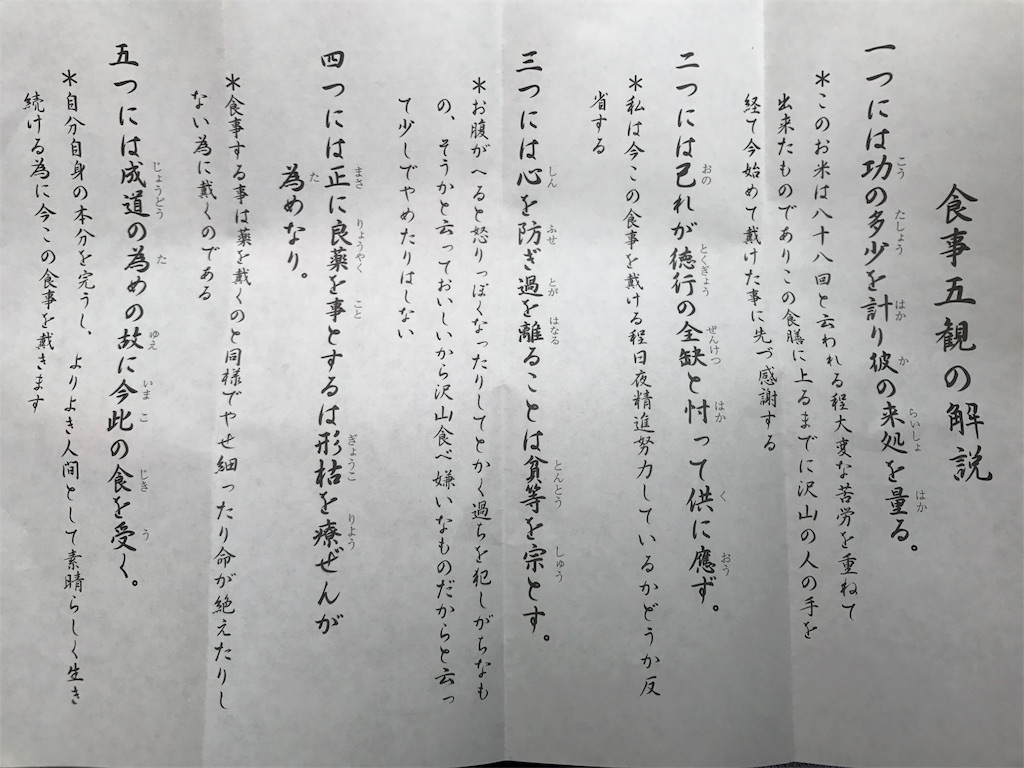 食事五観の解説
一つには功の多少を計り彼の来処を量る。
こう たしょう はか か らいしょ はか
＊このお米は八十八回と云われる程大変な苦労を重ねて
出来たものでありこの食膳に上るまでに沢山の人の手を
経て今始めて戴けた事に先づ感謝する
二つには己れが徳行の全缺と忖って供に應ず。
おの とくぎょう ぜんけつ はか く おう
＊私は今この食事を戴ける程日夜精進努力しているかどうか反
省する
三つには心を防ぎ過を離ることは貧等を宗とす。
しん ふせ とが はなる とんとう しゅう
＊お腹がへると怒りっぽくなったりしてとかく過ちを犯しがちなも
の、そうかと云っておいしいから沢山食べ嫌いなものだからと云っ
て少しでやめたりはしない
四つには正に良薬を事とするは形枯を療ぜんが
まさ りょうやく こと ぎょうこ りょう
為めなり。
た
＊食事する事は薬を戴くのと同様でやせ細ったり命が絶えたりし
ない為に戴くのである
五つには成道の為めの故に今此の食を受く。
じょうどう た ゆえ いま こ じき う
＊自分自身の本分を完うし、よりよき人間として素晴らしく生き
続ける為に今この食事を戴きます